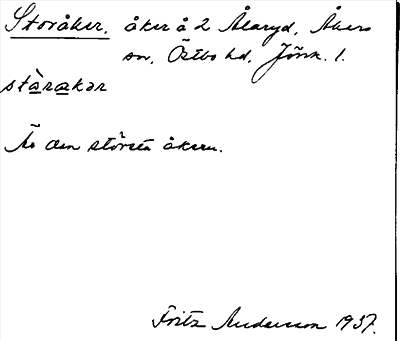 Storåker, åker å 2 Ålaryd, Åkers
sn, Östbo hd, Jönk. l.
stårakər
Är den största åkern.
Fritz Andersson 1937.